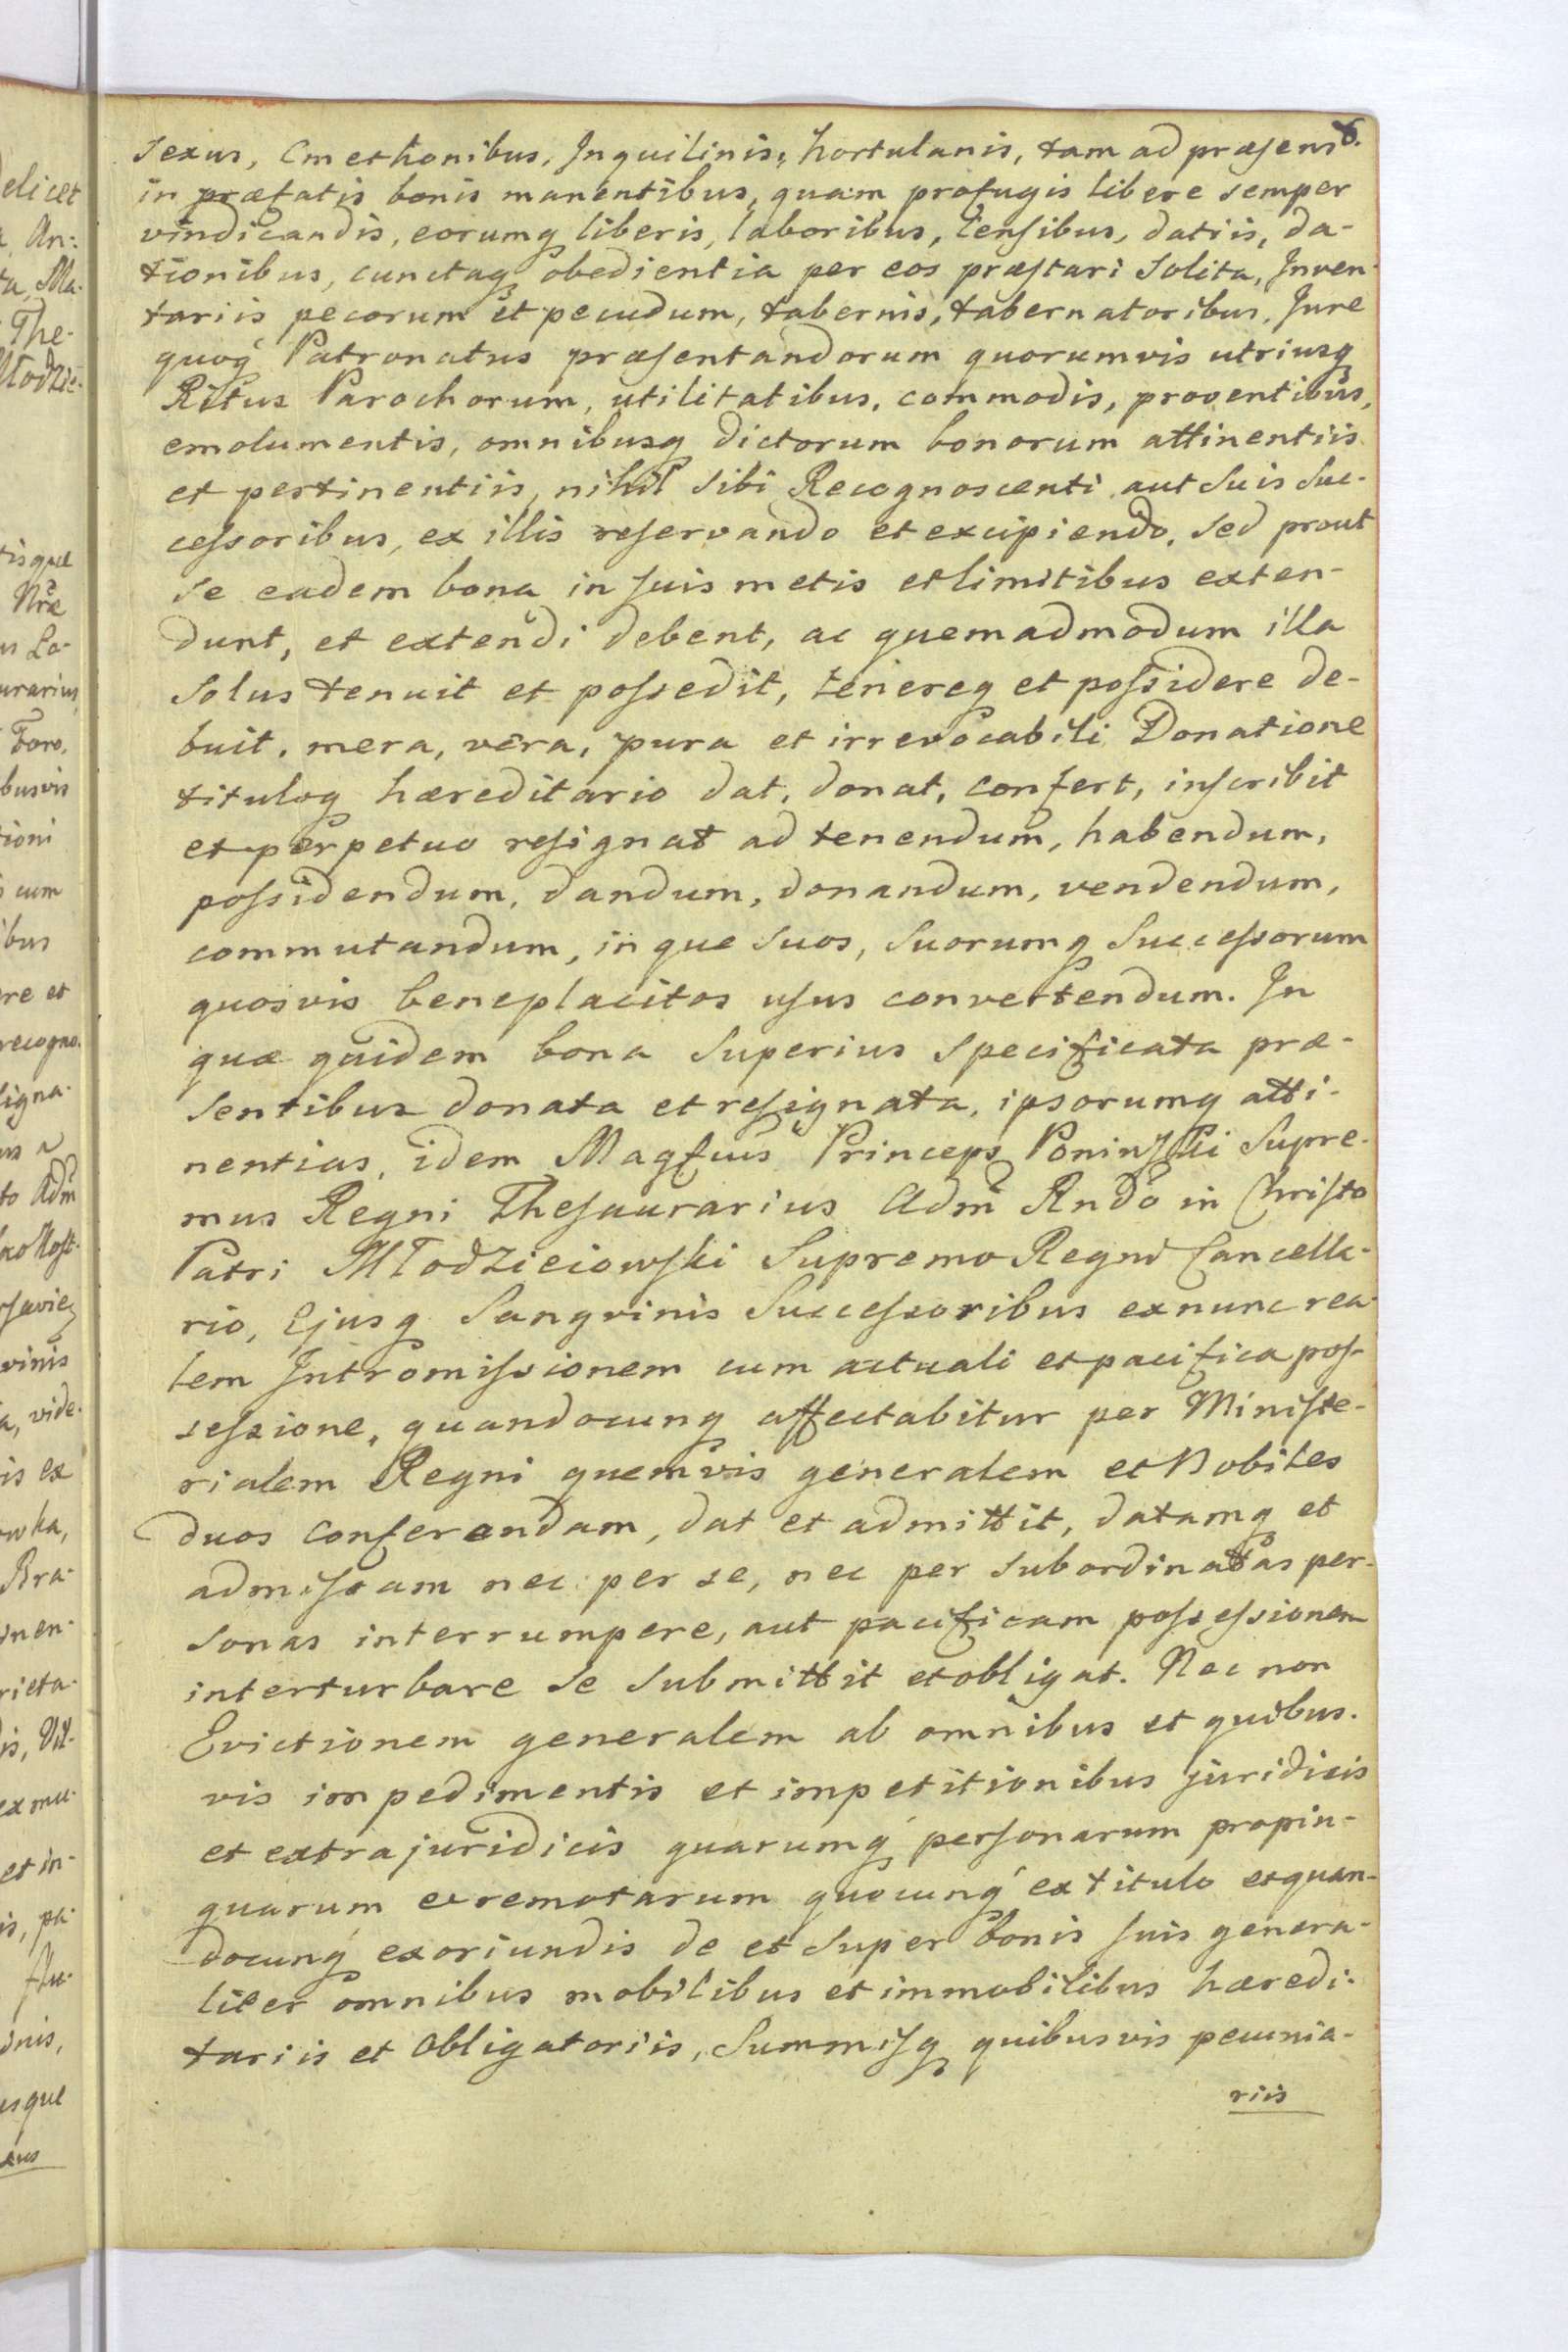 6.
sexus, Cmethonibus, Inquilinis, hortulanis, tam ad præsens
in præfatis bonis manentibus, quam profugis libere semper
vindicandis, eorumq liberis, laboribus, Censibus, datiis, da-
tionibus, cunctaq obedientia per eos præstari solita, Inven-
tariis pecorum et pecudum, tabernis, tabernatoribus, Jure
quoq Patronatus præsentandorum quorumvis utriusq
Ritus Parochorum, utilitatibus, commodis, proventibus,
emolumentis, omnibusq dictorum bonorum attinentiis
et pertinentiis, nihil sibi Recognoscenti aut suis Suc-
cessoribus, ex illis reservando et excipiendo, sed prout
se eadem bona in suis metis et limitibus exten-
dunt, et extendi debent, ac quemadmodum illa
solus tenuit et possedit, tenereq et possidere de-
buit, mera, vera, pura et irrevocabili Donatione
tituloq hæreditario dat, donat, confert, inscribit
et perpetuo resignat ad tenendum, habendum,
possidendum, dandum, donandum, vendendum,
commutandum, in que suos, suorumq Successorum
quosvis beneplacitos usus convertendum. In
quæ quidem bona superius specificata præ-
sentibus donata et resignata, ipsorumq atti-
nentias, idem Magfcus Princeps Poninski Supre-
mus Regni Thesaurarius Adm Rndo in Christo
Patri Młodzieiowski Supremo Regni Cancella-
rio, Ejusq Sangvinis Successoribus exnunc rea-
lem Intromissionem cum actuali et pacifica pos-
sessione, quandocunq affectabitur per Ministe-
rialem Regni quemvis generalem et Nobiles
duos conferendam, dat et admittit, datamq et
admissam nec per se, nec per subordinatas per-
sonas interrumpere, aut pacificam possessionem
interturbare se submittit et obligat. Nec non
Evictionem generalem ab omnibus et quibus-
vis impedimentis et impetitionibus juridicis
et extrajuridicis quarumq personarum propin-
quarum et remotarum quocunq ex titulo et quan-
docunq exoriundis de et super bonis suis genera-
liter omnibus mobilibus et immobilibus hæredi-
tariis et obligatoriis, Summisq quibusvis pecunia-
riis